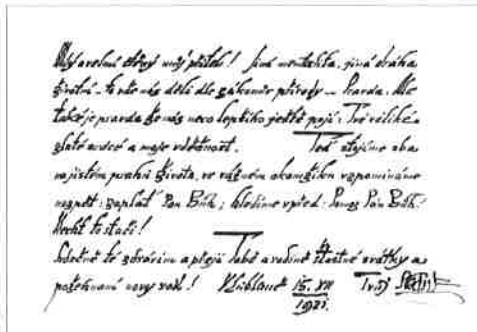 můj velmi ctěný můj příteli! Jiná mentalita, jiná dráha
životní – to vše nás dělí dle zákonův přírody – Pravda. Ale
také je pravda že nás něco lepšího ještě pojí: Tvé veliké
zlaté srdce a moje vděčnost. Teď stojíme oba
na jistém prahu života, ve vážném okamžiku vzpomínáme
nazpět: zaplať Pán Bůh; hledíme vpřed: Pomoz Pán Bůh.
Nechť to stačí!
Srdečně tě zdravím a přeji Tobě a rodině šťastné svátky a
požehnaný nový rok! V Lublaně 15. XII
1921. Tvůj